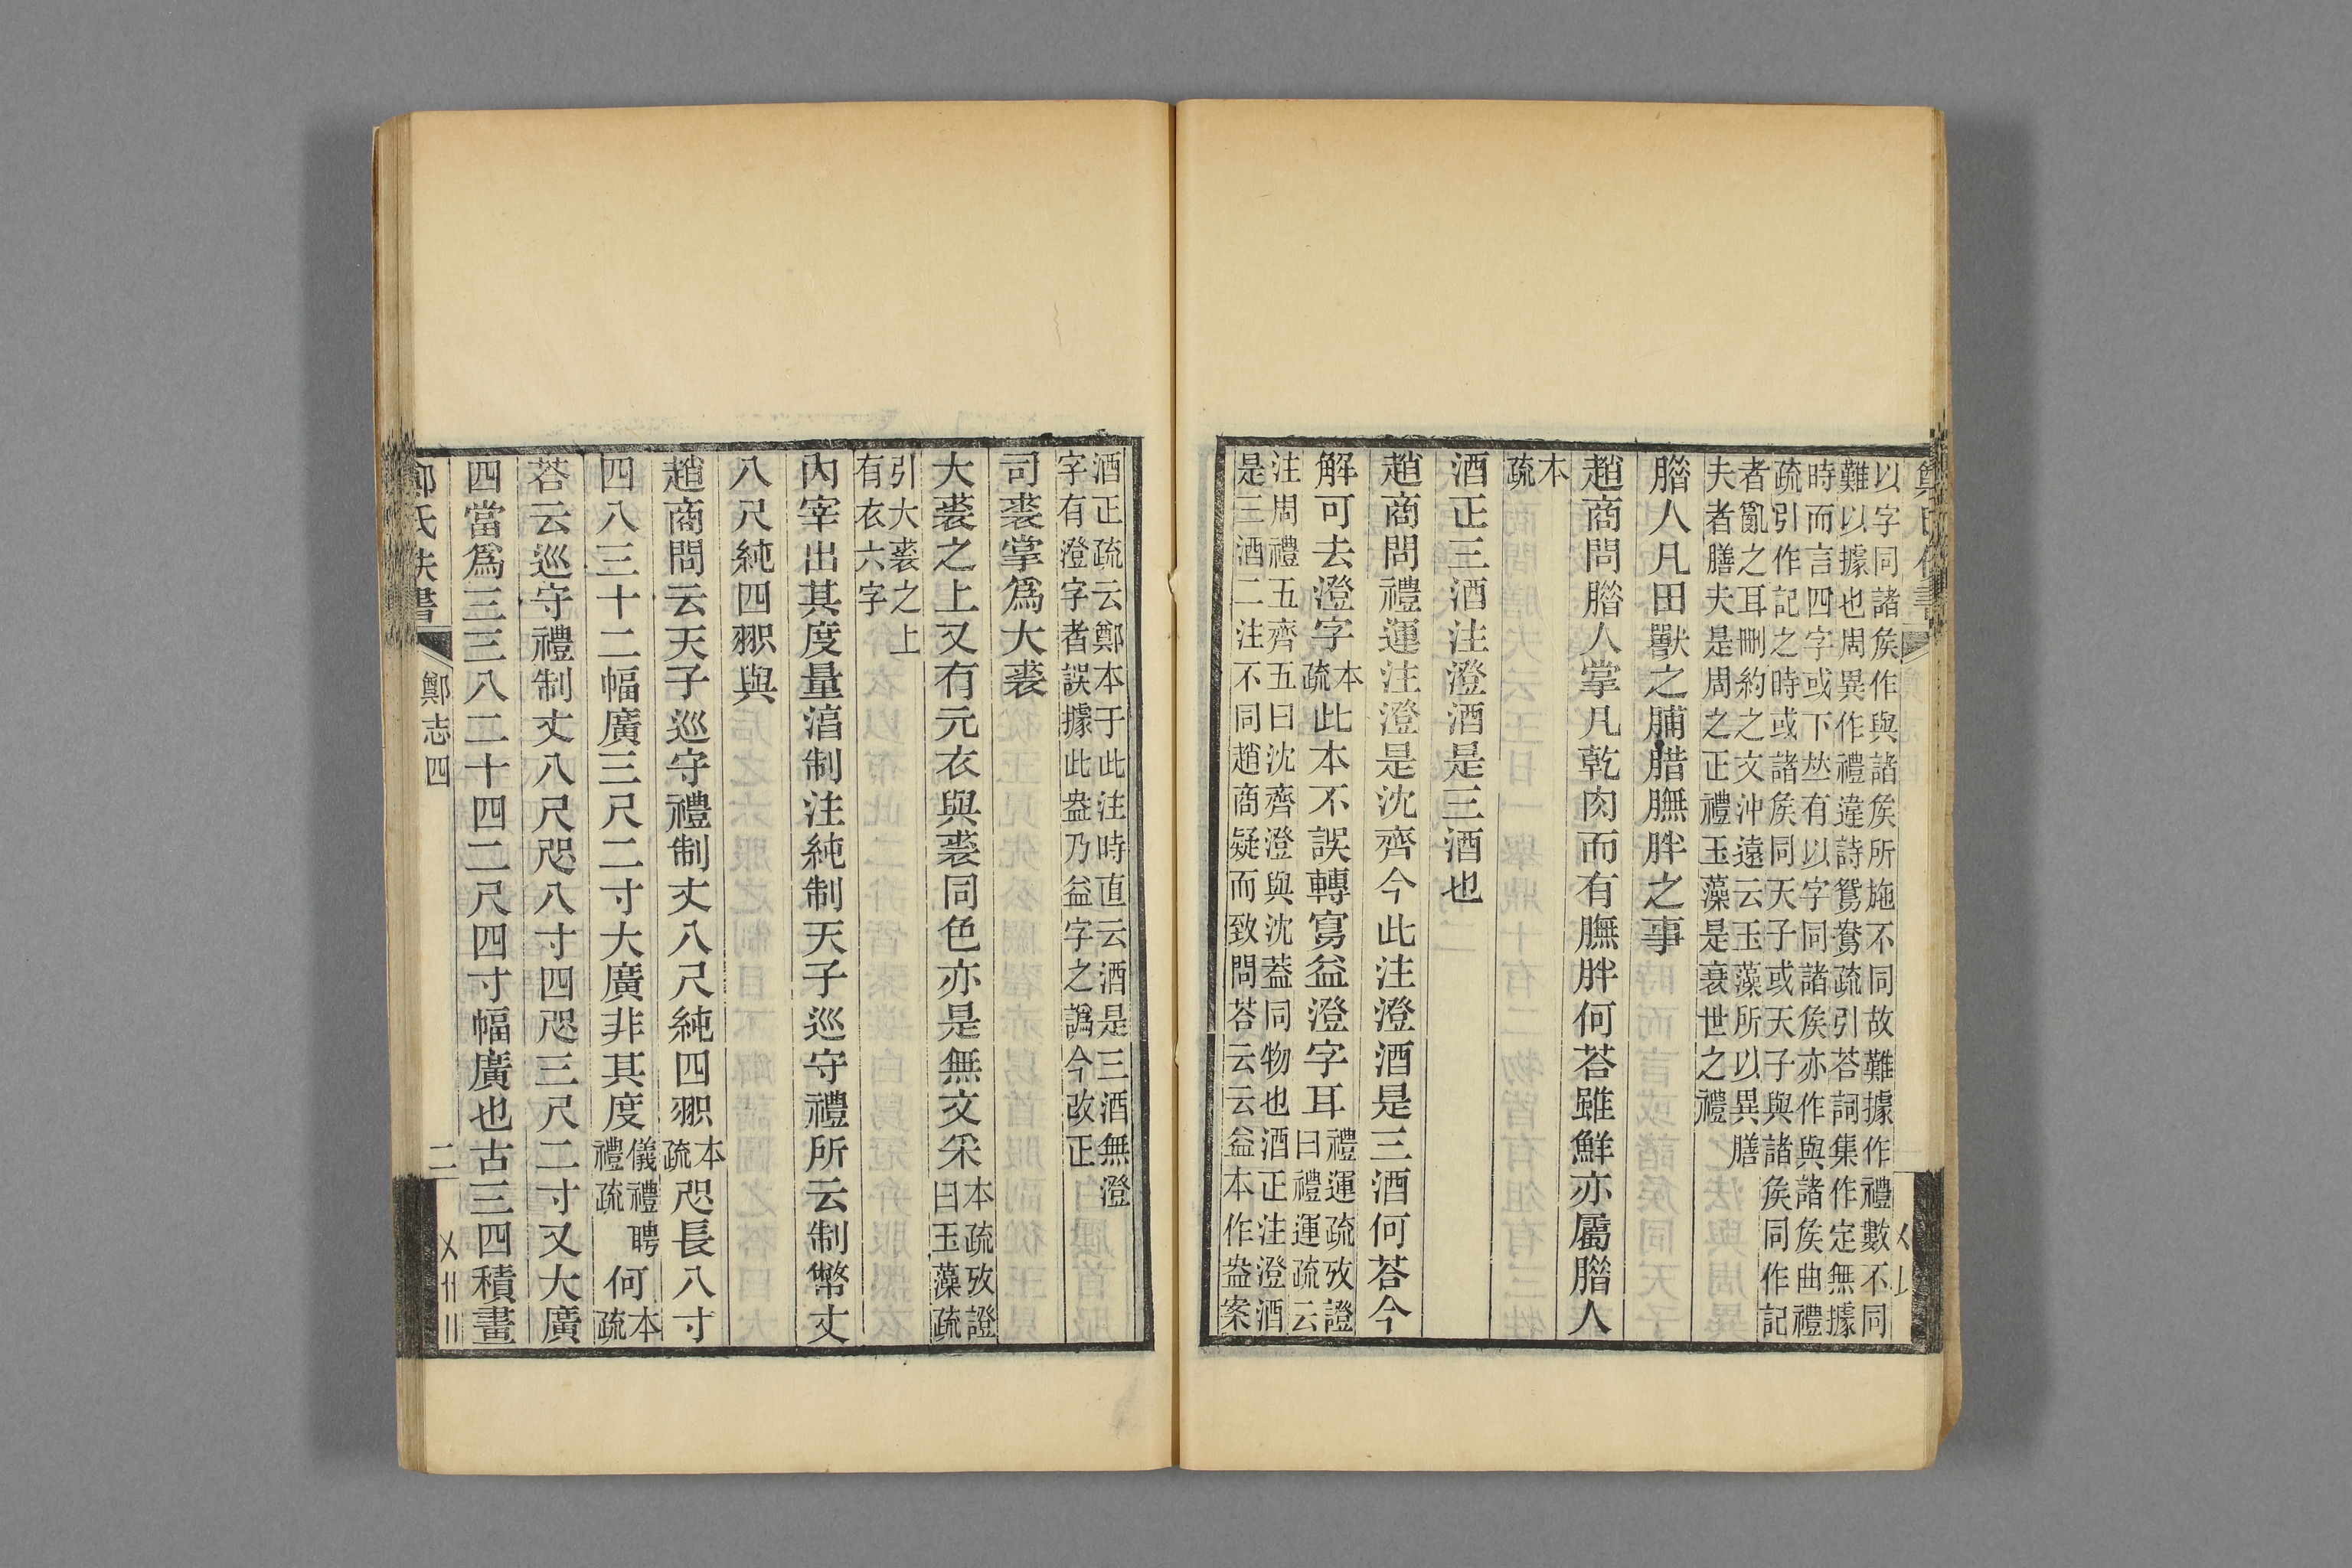 鄭氏佚書
以字同諸矦作與諸矦所施不同故難據作禮數不同
難以據也周異作禮違詩鴛鴦疏引荅詞集作定無據
時而言四字或下𠀤有以字同諸矦亦作與諸矦曲禮
疏引作記之時或諸矦同天子或天子與諸矦同作記
者亂之耳刪約之文沖遠云玉藻所以異膳
夫者膳夫是周之正禮玉藻是衰世之禮
腊人凡田獸之脯腊膴胖之事
趙商問腊人掌凡乾肉而有膴胖何荅雖鮮亦屬腊人
本疏
酒正三酒注澄酒是三酒也
趙商問禮運注澄是沈齊今此注澄酒是三酒何荅今
解可去澄字本疏此本不誤轉寫益澄字耳禮運疏攷證曰禮運疏云
注周禮五齊五曰沈齊澄與沈蓋同物也酒正注澄酒
是三酒二注不同趙商疑而致問荅云云益本作盎案
酒正疏云鄭本于此注時直云酒是三酒無澄
字有澄字者誤據此盎乃益字之譌今改正
司裘掌爲大裘
大裘之上又有元衣與裘同色亦是無文采本疏攷證曰玉藻疏
引大裘之上
有衣六字
內宰出其度量淳制注純制天子巡守禮所云制幣丈
八尺純四咫與
趙商問云天子巡守禮制丈八尺純四咫本疏咫長八寸
四八三十二幅廣三尺二寸大廣非其度儀禮聘禮疏何本疏
荅云巡守禮制丈八尺咫八寸四咫三尺二寸又大廣
四當爲三三八二十四二尺四寸幅廣也古三四積畫
鄭氏佚書 鄭志四 二